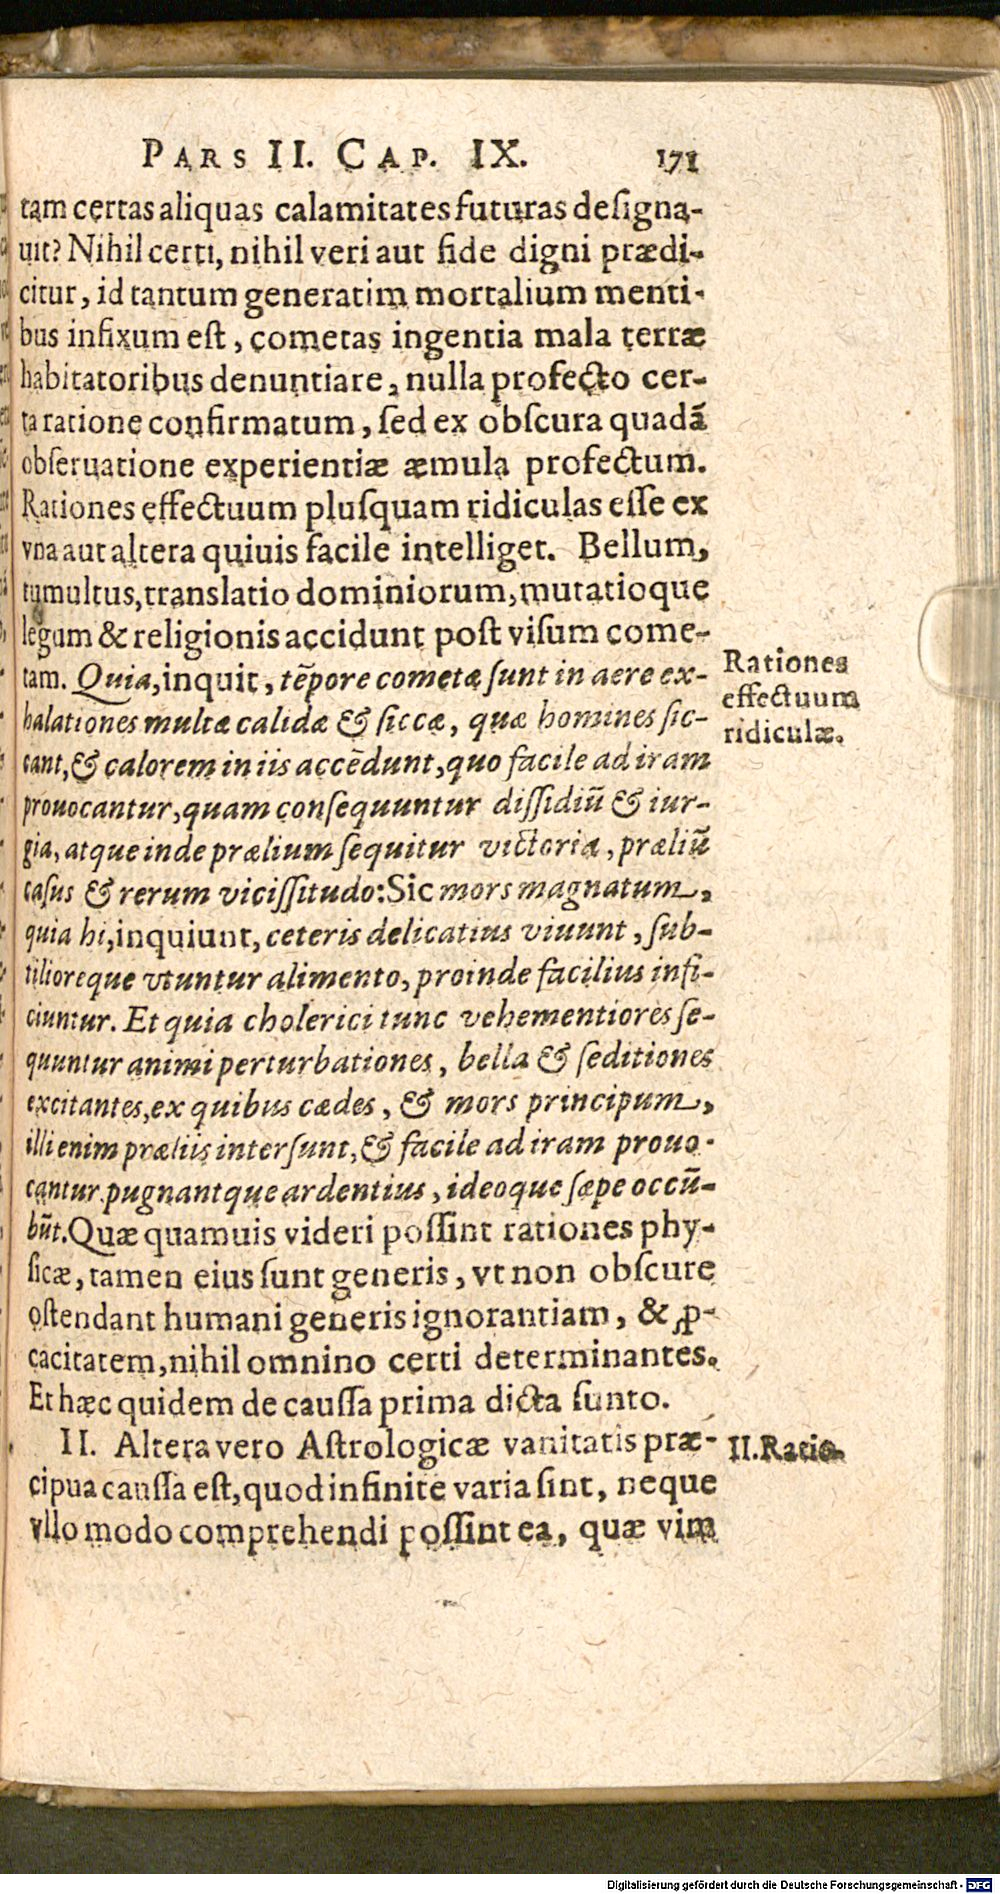 PARS II. CAP. IX. 171
tam certas aliquas calamitates futuras designa-
uit? Nihil certi, nihil veri aut fide digni prædi-
citur, id tantum generatim mortalium menti-
bus infixum est, cometas ingentia mala terræ
habitatoribus denuntiare, nulla profecto cer-
ta ratione confirmatum, sed ex obscura quadā
obseruatione experientiæ æmula profectum.
Rationes effectuum plusquam ridiculas esse ex
vna aut altera quiuis facile intelliget. Bellum,
tumultus, translatio dominiorum, mutatioque
legum & religionis accidunt post visum come-
tam. Quia, inquit, tēpore cometæ sunt in aere ex-
halationes multæ calidæ & siccæ, quæ homines sic-
cant, & calorem in iis accēdunt, quo facile ad iram
prouocantur, quam consequuntur dissidiū & iur-
gia, atque inde prælium sequitur victoria, præliū
casus & rerum vicissitudo: Sic mors magnatum,
quia hi, inquiunt, ceteris delicatius viuunt, sub-
tilioreque vtuntur alimento, proinde facilius infi-
ciuntur. Et quia cholerici tunc vehementiores se-
quuntur animi perturbationes, bella & seditiones
excitantes, ex quibus cædes, & mors principum,
illi enim præliis intersunt, & facile ad iram prouo-
cantur pugnantque ardentius, ideoque sæpe occū-
būt. Quæ quamuis videri possint rationes phy-
sicæ, tamen eius sunt generis, vt non obscure
ostendant humani generis ignorantiam, & ꝓ-
cacitatem, nihil omnino certi determinantes.
Et hæc quidem de caussa prima dicta sunto.
II. Altera vero Astrologicæ vanitatis præ-
cipua caussa est, quod infinite varia sint, neque
vllo modo comprehendi possint ea, quæ vim
Rationes
effectuum
ridiculæ.
II. Ratio.
Digitalisierung gefördert durch die Deutsche Forschungsgemeinschaft - DFG